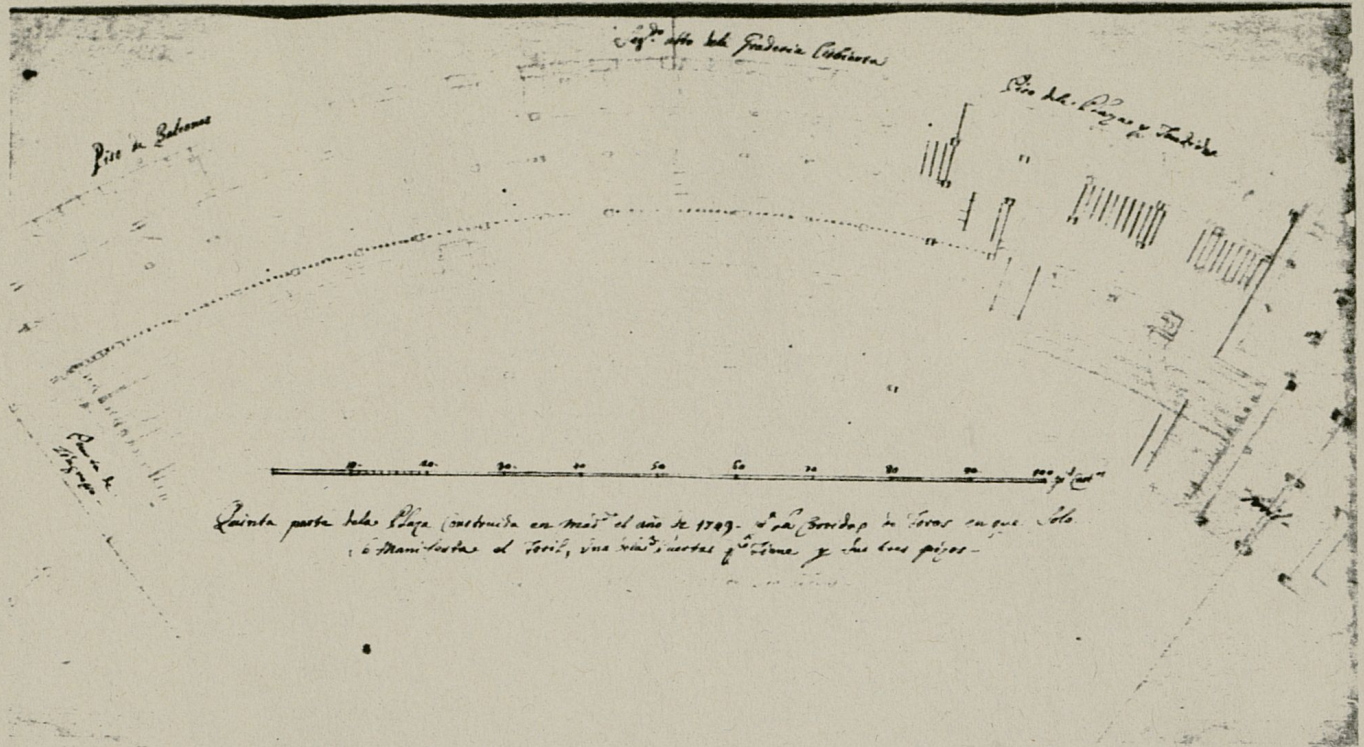 alto dela Graderia Cubierta
Piso de la Plaza y Tendidos
Piso de Balcones
10 20 30 40 50 60 70 80 90 100
Quinta parte dela Plaza Construida en Mad.d el año de 1749. p.a la Corridas de Toros en que Solo
se Manifiesta el Toril, una delas Puertas q.e Tiene y sus tres pisos
Toril